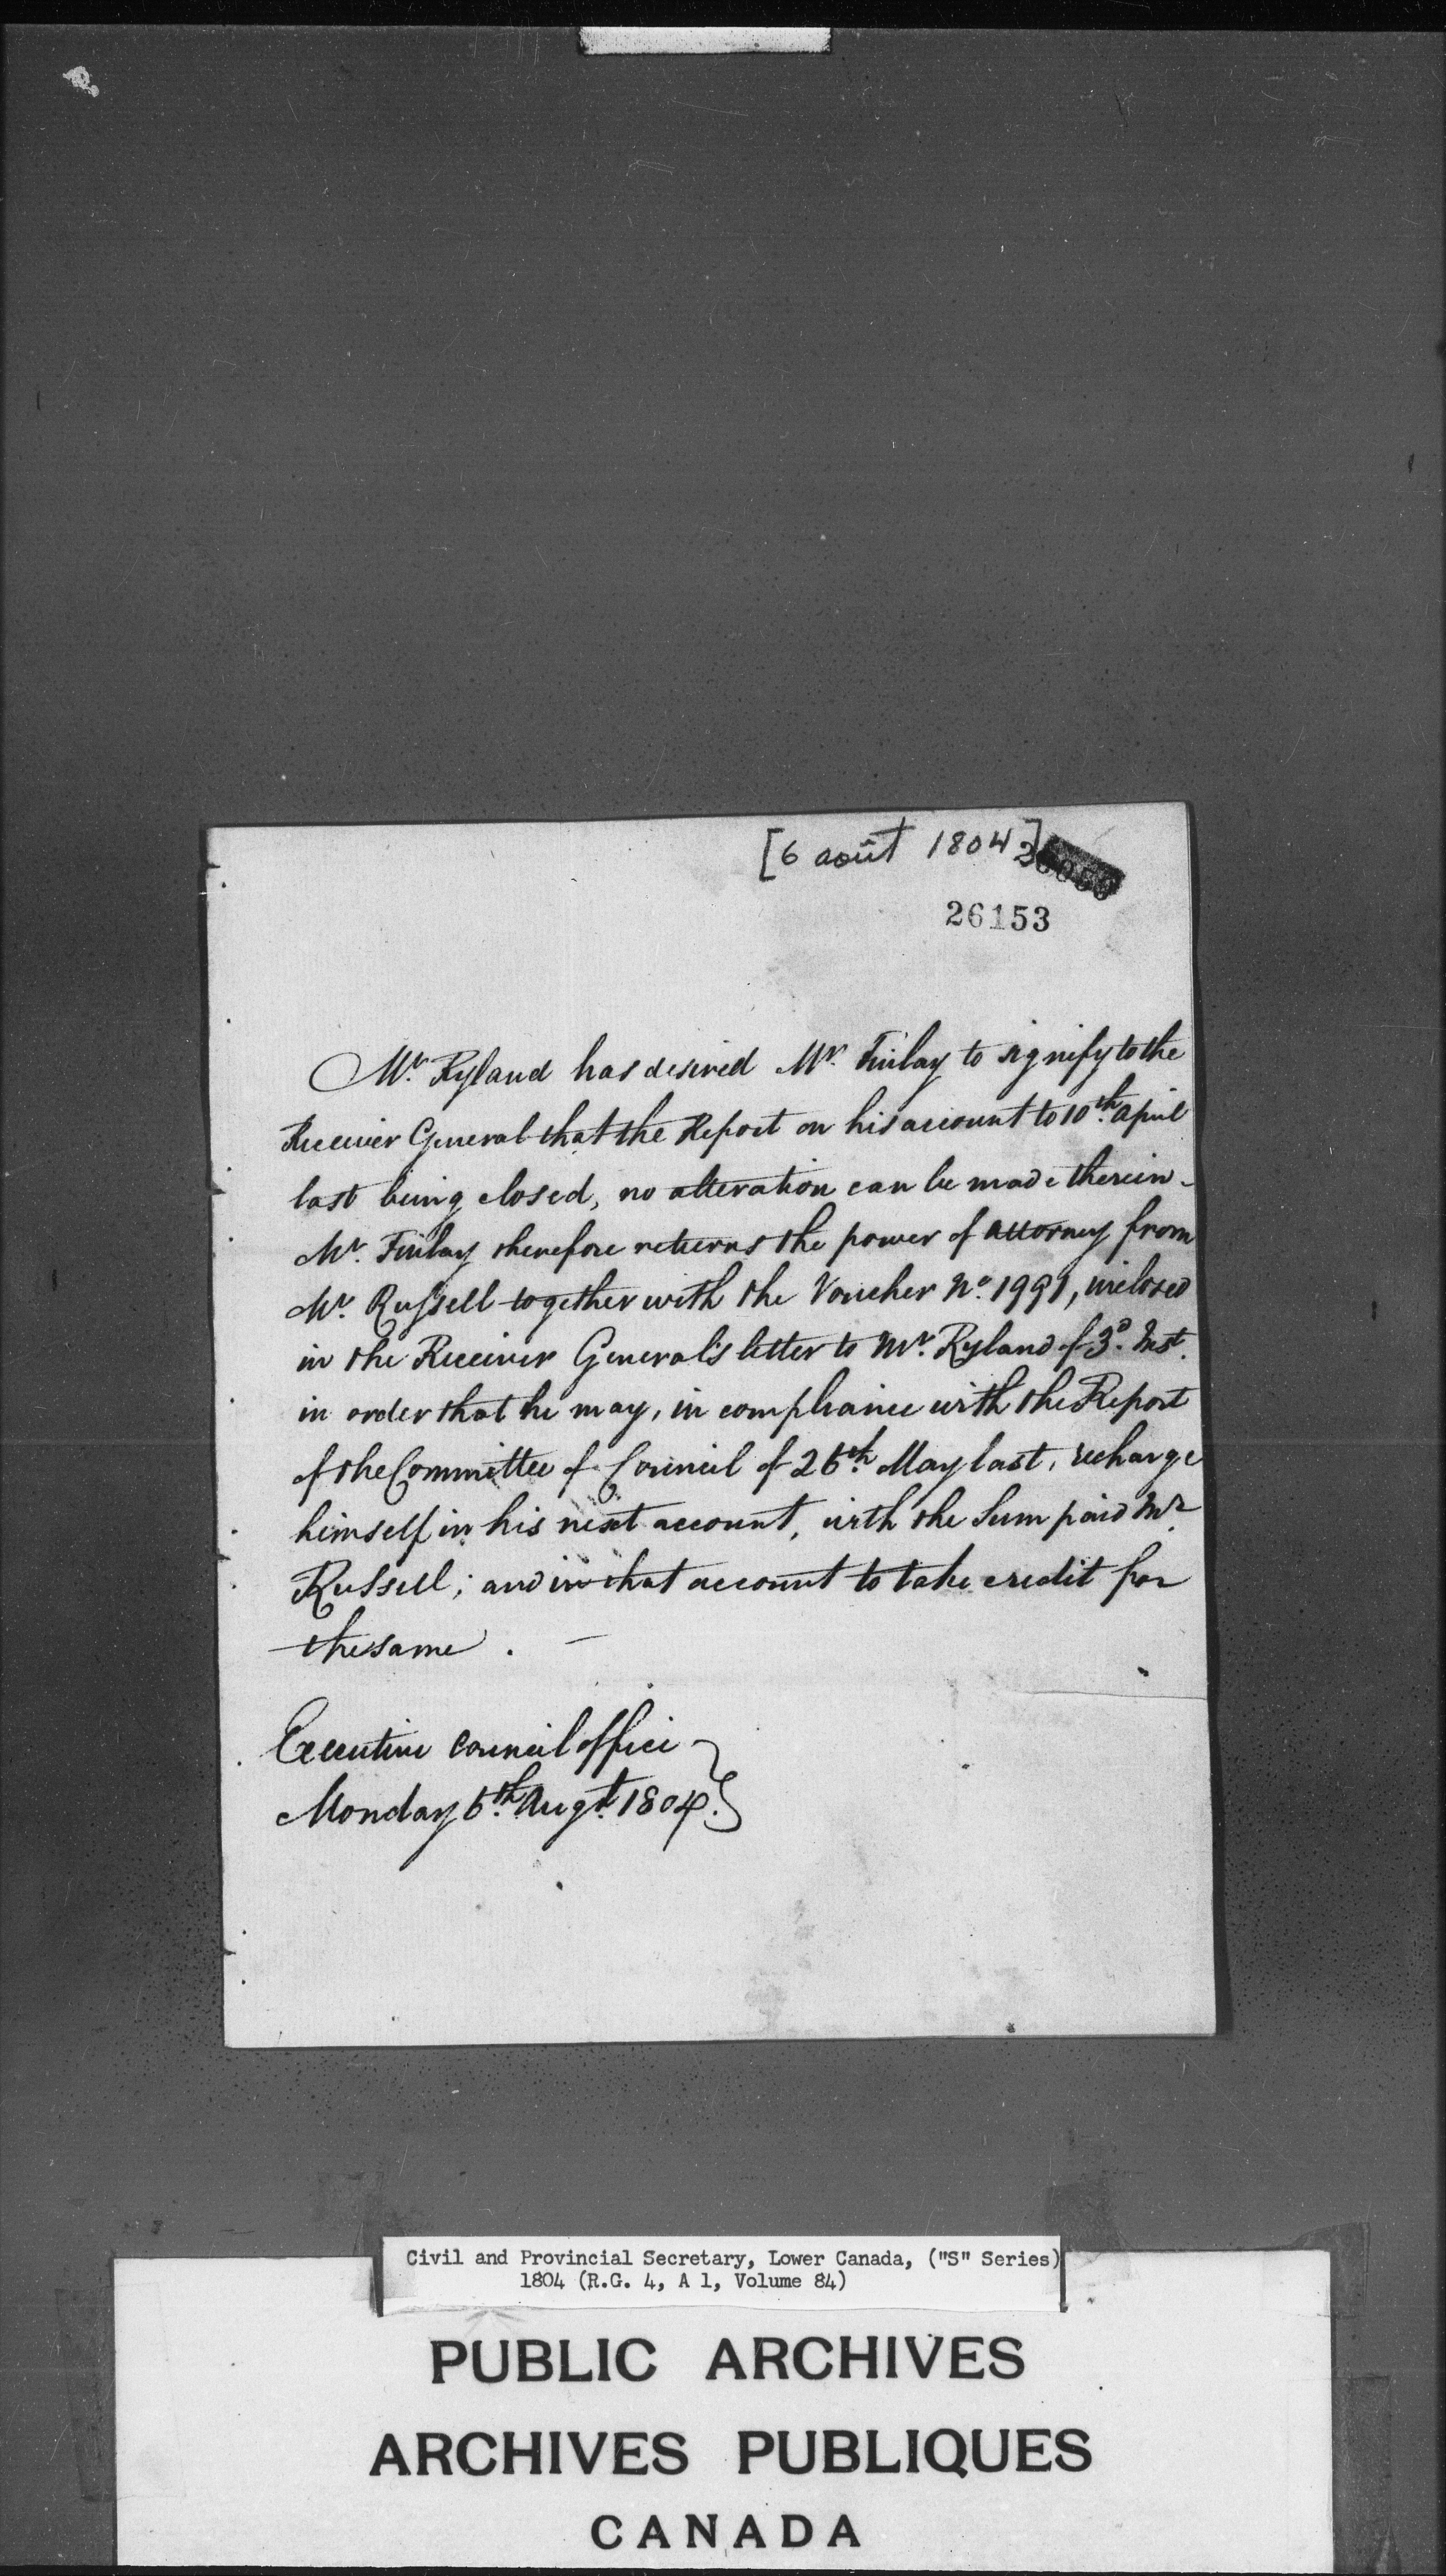 [6 août 1804]
26153
Mr. Ryland has desired Mr. Finlay to signify to the
Receiver General that the Report on his account to 10th. April
last being closed, no alteration can be made therein.
Mr. Finlay therefore returns the power of attorney from
Mr. Russell together with the Voucher No. 1991, inclosed
in the Receiver General's letter to Mr. Ryland of 3d. Inst.
in order that he may, in compliance with the Report
of the Committee of Council of 26th. May last, recharge
himself in his next account, with the Sum paid Mr.
Russell; and in that account to take credit for
the same. —
Executive Council office
Monday 6th. Augt. 1804.
Civil and Provincial Secretary, Lower Canada, ("S" Series)
1804 (R.G. 4, A 1, Volume 84)
PUBLIC ARCHIVES
ARCHIVES PUBLIQUES
CANADA